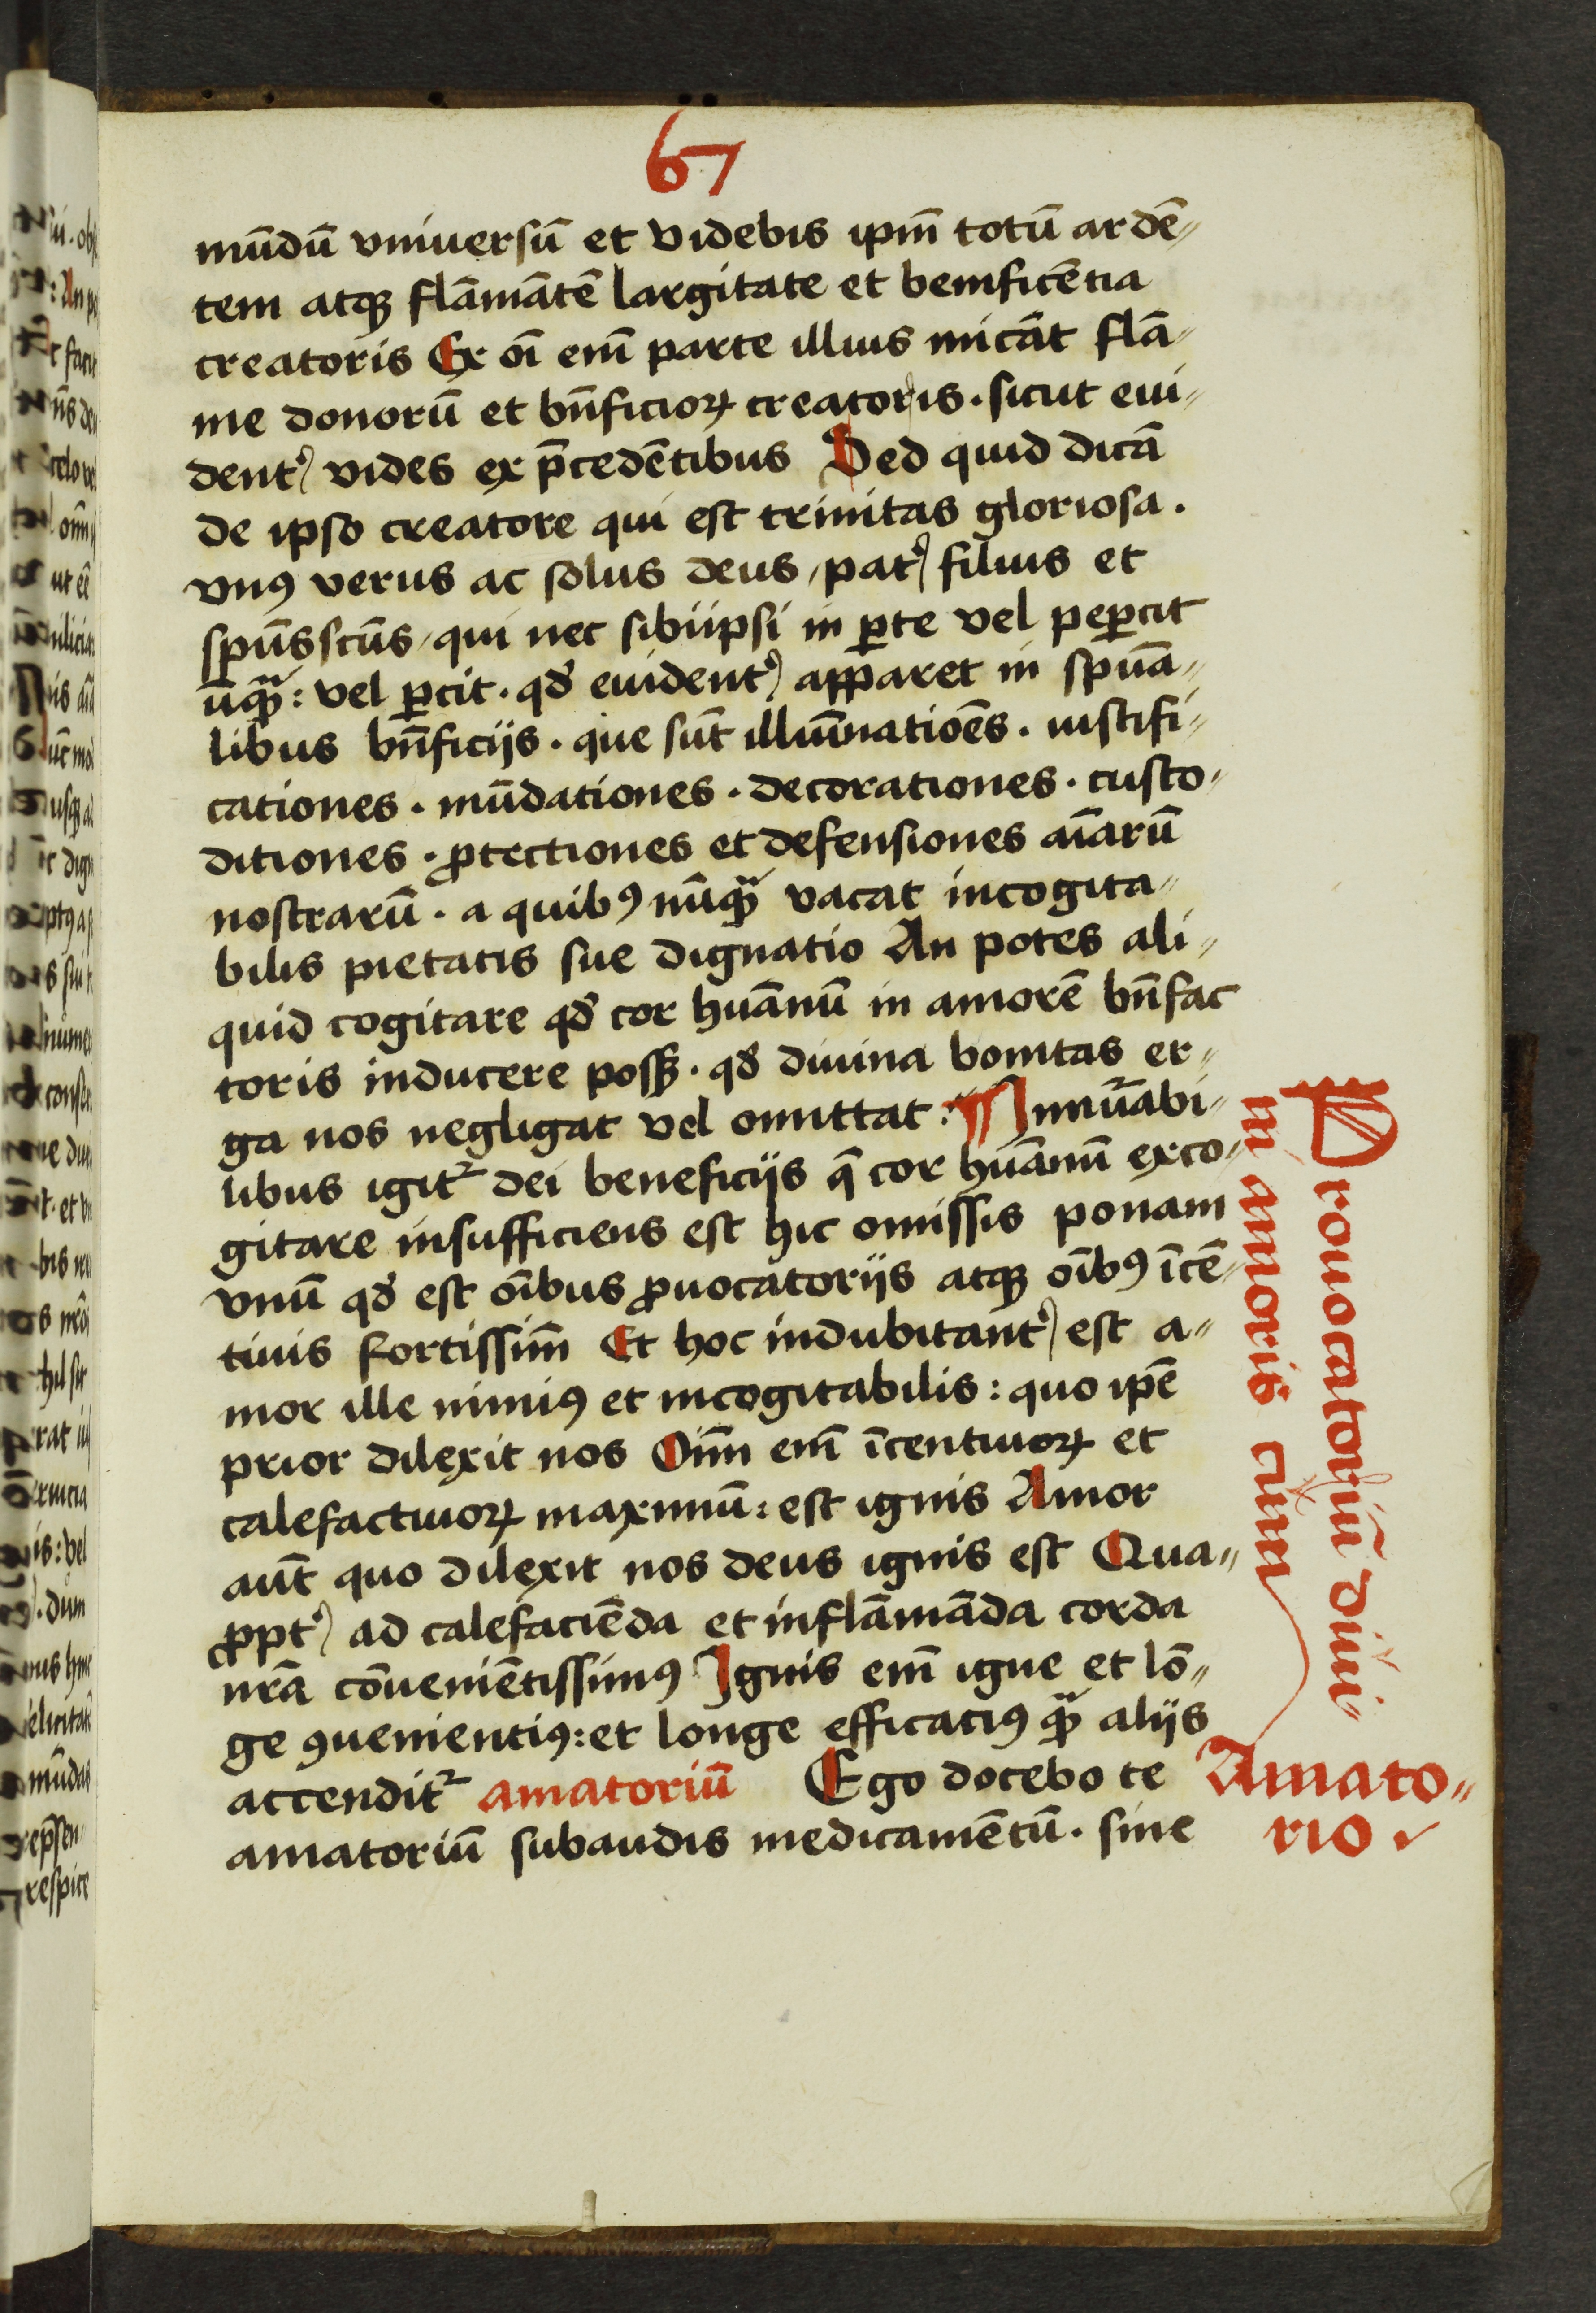 67
mūdū vniuersū et videbis ipm̄ totū ardē-
tem atqꝫ flāmātē largitate et benificētia
creatoris Ex oī em̄ parte illius micāt flā-
me donorū et bn̄ficioꝝ creatoris. sicut eui-
dent᷑ vides ex p̄cedētibus Sed quid dicā
de ipso creatore qui est trinitas gloriosa.
vnꝰ verus ac solus deus, pat᷑ filius et
spūs scūs, qui nec sibiipsi in ꝑte vel peꝑcit
ūqꝫ̃: vel ꝑcit. qđ euident᷑ apparet in spūa-
libus bn̄ficijs. que sūt illuīnatiōes. iustifi-
cationes. mūdationes. decorationes. custo-
ditiones. ꝓtectiones et defensiones aīarū
nostrarū. a quibꝰ nūqꝫ̃ vacat incogita-
bilis pietatis sue dignatio An potes ali-
quid cogitare qđ cor huānū in amorē bn̄fac
toris inducere possꝫ. qđ diuina bonitas er-
ga nos negligat vel omittat: Innūabi-
libus igit᷑ dei beneficijs q̄ cor huānū exco-
gitare insufficiens est hic omissis ponam
vnū qđ est oībus ꝓuocatorijs atqꝫ oībꝰ īcē-
tiuis fortissim̄ Et hoc indubitant᷑ est a-
mor ille nimiꝰ et incogitabilis: quo ipē
prior dilexit nos Oīm em̄ īcentiuoꝝ et
calefactiuoꝝ maximū: est ignis Amor
aūt quo dilexit nos deus ignis est Qua-
ꝓpt᷑ ad calefaciēda et inflāmāda corda
nr̄a cōueniētissimꝰ Ignis em̄ igne et lō-
ge ꝯuenientiꝰ: et longe efficaciꝰ qꝫ̃ alijs
accendit᷑ amatoriū Ego docebo te
amatoriū subaudis medicamētū. sine
Prouocatoriū diui-
ni amoris cum
Amato-
rio.